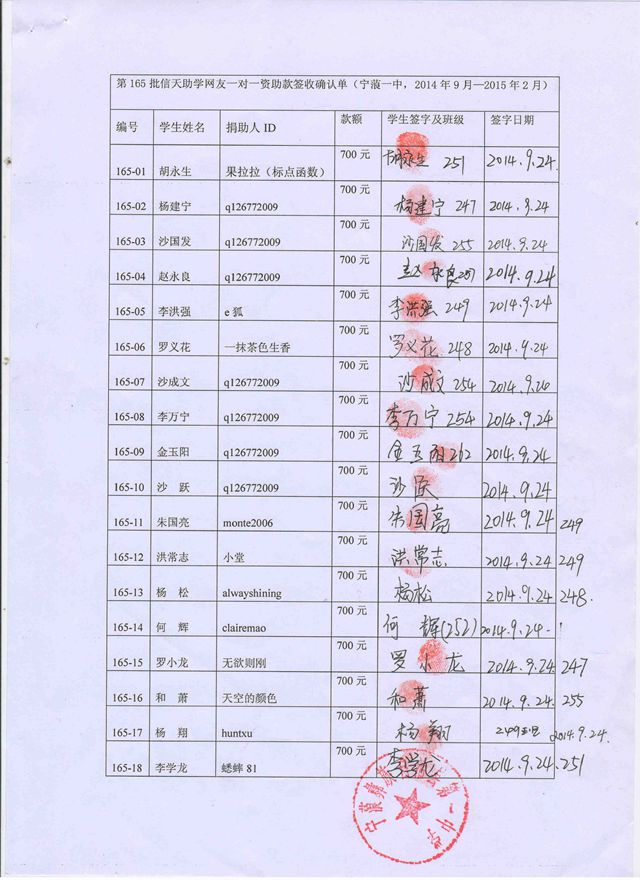 第 165 批信天助学网友一对一资助款签收确认单（宁蒗一中，2014 年 9 月—2015 年 2 月）
编号 学生姓名 捐助人 ID 款额 学生签字及班级 签字日期
165-01 胡永生 果拉拉（标点函数） 700 元 胡永生 251 2014.9.24
165-02 杨建宁 q126772009 700 元 杨建宁 247 2014.9.24
165-03 沙国发 q126772009 700 元 沙国发 255 2014.9.24
165-04 赵永良 q126772009 700 元 赵永良 251 2014.9.24
165-05 李洪强 e 狐 700 元 李洪强 249 2014.9.24
165-06 罗义花 一抹茶色生香 700 元 罗义花 248 2014.9.24
165-07 沙成文 q126772009 700 元 沙成文 254 2014.9.26
165-08 李万宁 q126772009 700 元 李万宁 254 2014.9.24
165-09 金玉阳 q126772009 700 元 金玉阳 262 2014.9.24
165-10 沙 跃 q126772009 700 元 沙 跃 2014.9.24
165-11 朱国亮 monte2006 700 元 朱国亮 2014.9.24 249
165-12 洪常志 小堂 700 元 洪常志 2014.9.24 249
165-13 杨 松 alwayshining 700 元 杨松 2014.9.24 248.
165-14 何 辉 clairemao 700 元 何 辉(252) 2014.9.24
165-15 罗小龙 无欲则刚 700 元 罗小龙 2014.9.24. 247
165-16 和 萧 天空的颜色 700 元 和萧 2014.9.24. 255
165-17 杨 翔 huntxu 700 元 杨翔 249 2014.9.24.
165-18 李学龙 蟋蟀 81 700 元 李学龙 2014.9.24. 251
第一中学